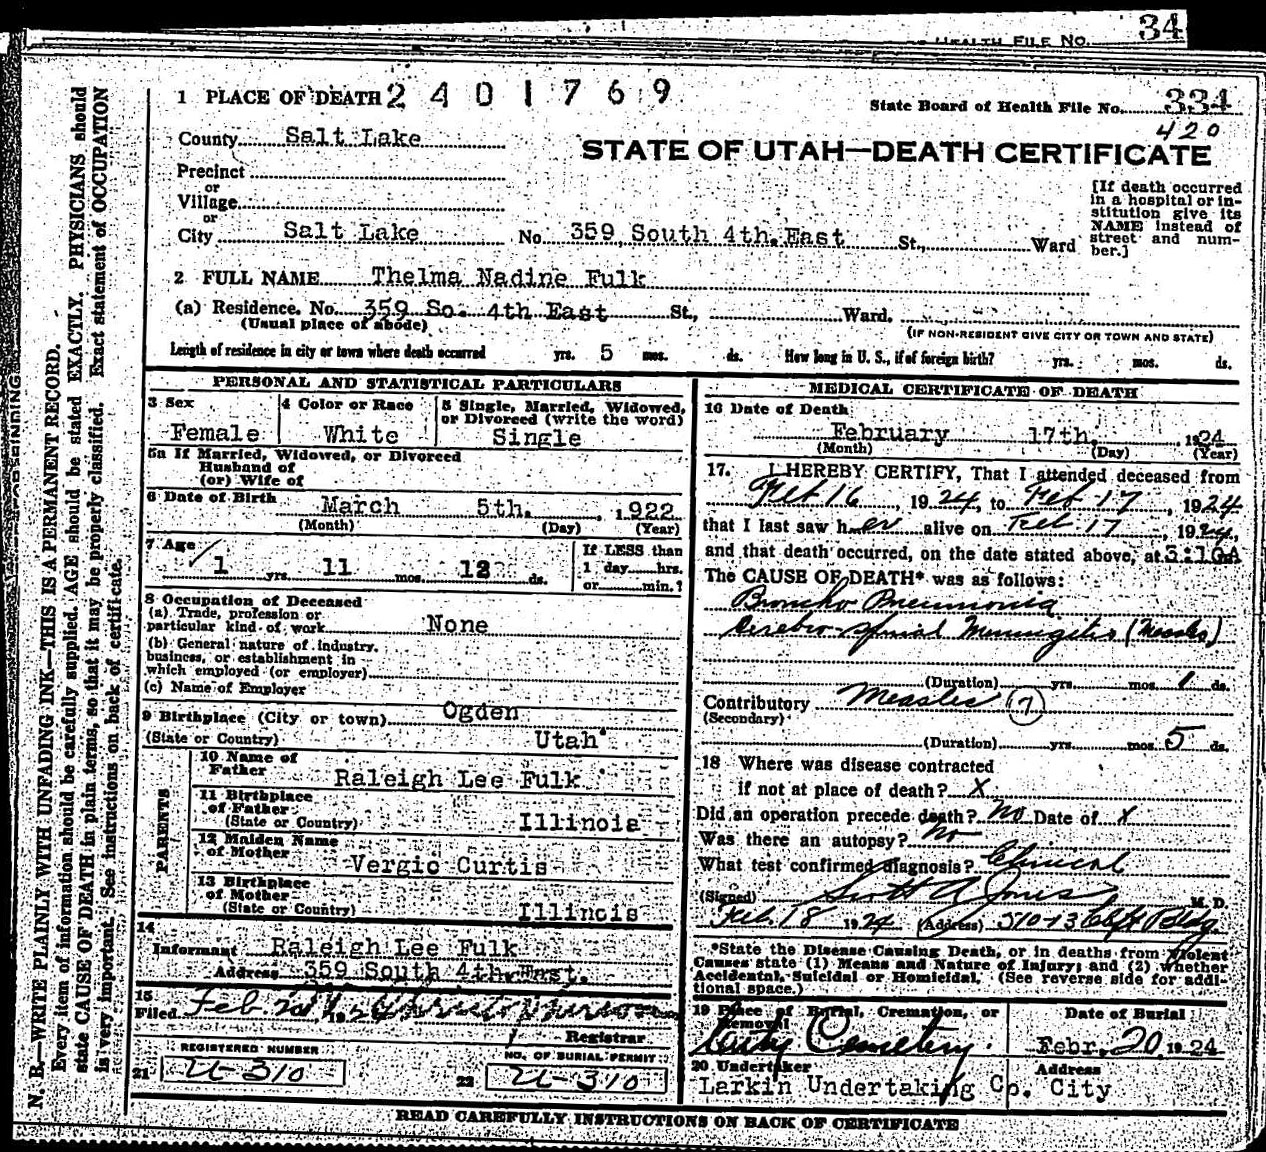 HEALTH FILE NO. 34
1 PLACE OF DEATH 2 4 0 1 7 6 9
State Board of Health File No. 334
420
County Salt Lake
STATE OF UTAH—DEATH CERTIFICATE
Precinct
or
Village
or
City Salt Lake No. 359 South 4th. East St., Ward
[If death occurred
in a hospital or in-
stitution give its
NAME instead of
street and num-
ber.]
2 FULL NAME Thelma Nadine Fulk
(a) Residence. No. 359 So. 4th East St., Ward.
(Usual place of abode) (IF NON-RESIDENT GIVE CITY OR TOWN AND STATE)
Length of residence in city or town where death occurred yrs. 5 mos. ds. How long in U. S., if of foreign birth? yrs. mos. ds.
PERSONAL AND STATISTICAL PARTICULARS
3 Sex
Female
4 Color or Race
White
5 Single, Married, Widowed,
or Divorced (write the word)
Single
5a If Married, Widowed, or Divorced
Husband of
(or) Wife of
6 Date of Birth March 5th. , 1922
(Month) (Day) (Year)
7 Age
1 yrs. 11 mos. 12 ds.
If LESS than
1 day hrs.
or min.?
8 Occupation of Deceased
(a) Trade, profession or
particular kind of work None
(b) General nature of industry,
business, or establishment in
which employed (or employer)
(c) Name of Employer
9 Birthplace (City or town) Ogden
(State or Country) Utah
PARENTS
10 Name of
Father Raleigh Lee Fulk
11 Birthplace
of Father
(State or Country) Illinois
12 Maiden Name
of Mother Vergie Curtis
13 Birthplace
of Mother
(State or Country) Illinois
14
Informant Raleigh Lee Fulk
Address 359 South 4th. East.
15
Filed Feb. 19
Registrar
REGISTERED NUMBER
21 U-310
NO. OF BURIAL PERMIT
22 U-310
MEDICAL CERTIFICATE OF DEATH
16 Date of Death
February 17th. , 1924
(Month) (Day) (Year)
17. I HEREBY CERTIFY, That I attended deceased from
Feb 16 , 1924, to Feb 17 , 1924
that I last saw her alive on Feb 17 , 1924,
and that death occurred, on the date stated above, at 3:10A
The CAUSE OF DEATH* was as follows:
Broncho Pneumonia
Cerebro-spinal Meningitis (Measles)
(Duration) yrs. mos. 1 ds.
Contributory Measles (7)
(Secondary)
(Duration) yrs. mos. 5 ds.
18 Where was disease contracted
if not at place of death? X
Did an operation precede death? No Date of X
Was there an autopsy? No
What test confirmed diagnosis? Clinical
(Signed) Scott A Jones M. D.
Feb. 18 1924 (Address) 510-13 Clift Bldg.
*State the Disease Causing Death, or in deaths from Violent
Causes state (1) Means and Nature of Injury; and (2) whether
Accidental, Suicidal or Homicidal. (See reverse side for addi-
tional space.)
19 Place of Burial, Cremation, or
Removal
City Cemetery.
Date of Burial
Febr. 20, 1924
20 Undertaker
Larkin Undertaking Co.
Address
City
READ CAREFULLY INSTRUCTIONS ON BACK OF CERTIFICATE
N. B.—WRITE PLAINLY WITH UNFADING INK—THIS IS A PERMANENT RECORD.
Every item of information should be carefully supplied. AGE should be stated EXACTLY. PHYSICIANS should
state CAUSE OF DEATH in plain terms, so that it may be properly classified. Exact statement of OCCUPATION
is very important. See instructions on back of certificate.